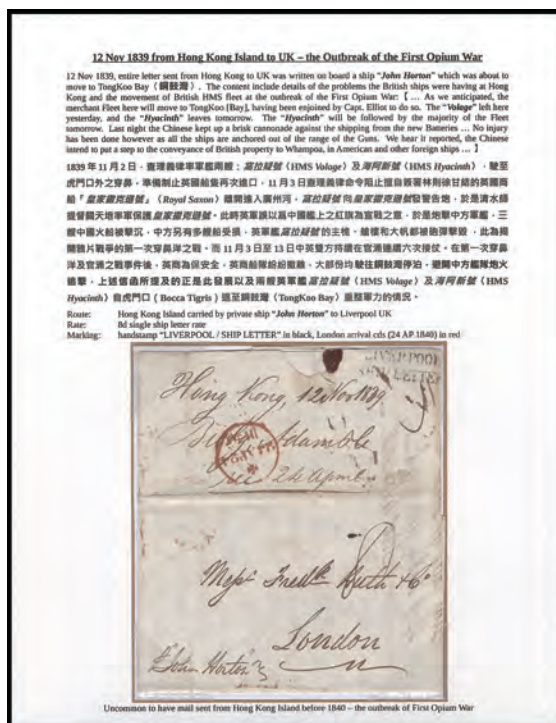 12 Nov 1839 from Hong Kong Island to UK – the Outbreak of the First Opium War
12 Nov 1839, entire letter sent from Hong Kong to UK was written on board a ship "John Horton" which was about to
move to TongKoo Bay (銅鼓灣). The content include details of the problems the British ships were having at Hong
Kong and the movement of British HMS fleet at the outbreak of the First Opium War: 【 … As we anticipated, the
merchant Fleet here will move to TongKoo [Bay], having been enjoined by Capt. Elliot to do so. The "Volage" left here
yesterday, and the "Hyacinth" leaves tomorrow. The "Hyacinth" will be followed by the majority of the Fleet
tomorrow. Last night the Chinese kept up a brisk cannonade against the shipping from the new Batteries … No injury
has been done however as all the ships are anchored out of the range of the Guns. We hear it reported, the Chinese
intend to put a step to the conveyance of British property to Whampoa, in American and other foreign ships … 】
1839 年 11 月 2 日,查理義律率軍艦兩艘:窩拉疑號 (HMS Volage) 及海阿新號 (HMS Hyacinth),駛至
虎門口外之穿鼻,準備制止英國船隻再次進口,11 月 3 日查理義律命令阻止擅自簽署林則徐甘結的英國商
船「皇家撒克遜號」(Royal Saxon) 離開進入廣州河,窩拉疑號向皇家撒克遜號發警告炮,於是清水師
提督關天培率軍保護皇家撒克遜號。此時英軍誤以為中國艦上之紅旗為宣戰之意,於是炮擊中方軍艦,三
艘中國火船被擊沉,中方另有多艘船受損,英軍艦窩拉疑號的主桅、艏檣和大帆都被砲彈擊毀,此為揭
開鴉片戰爭的第一次穿鼻洋之戰。而 11 月 3 日至 13 日中英雙方持續在官涌連續六次接仗。在第一次穿鼻
洋及官涌之戰事件後,英商為保安全,英商船隊紛紛撤離,大部份均駛往銅鼓灣停泊,避開中方艦隊炮火
追擊,上述信函所提及的正是此發展以及兩艘英軍艦窩拉疑號 (HMS Volage) 及海阿新號 (HMS
Hyacinth) 自虎門口 (Bocca Tigris) 退至銅鼓灣 (TongKoo Bay) 重整軍力的情況。
Route: Hong Kong Island carried by private ship "John Horton" to Liverpool UK
Rate: 8d single ship letter rate
Marking: handstamp "LIVERPOOL / SHIP LETTER" in black, London arrival cds (24 AP 1840) in red
LIVERPOOL
Hong Kong, 12 Nov 1839
24 April
Messrs Fredk Huth & Co
London
"John Horton"
Uncommon to have mail sent from Hong Kong Island before 1840 – the outbreak of First Opium War